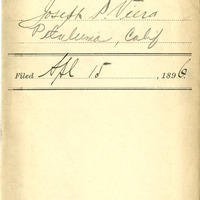 Joseph P. Viera
Petaluma, Calif
Filed Apl 15, 1896.